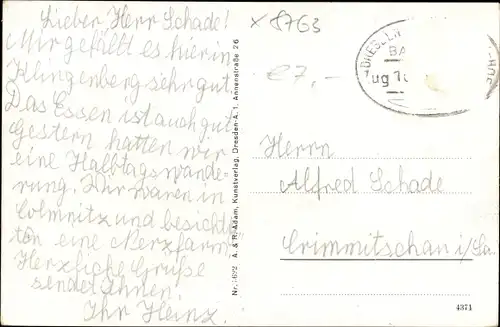 Lieber Herr Schade!
Mir gefällt es hier in
Klingenberg sehr gut.
Das Essen ist auch gut.
Gestern hatten wir
eine Halbtagswande-
rung. Wir waren in
Colmnitz und besich-
ten eine Nerzfarm
Herzliche Grüße
sendet Ihnen
Ihr Heinz.
x 8763
€7,-
DRESDEN
BA
Zug
Nr. A. & R. Adam, Kunstverlag, Dresden-A. 1, Annenstraße 26
Herrn
Alfred Schade
Crimmitschau i/Sa.
4371